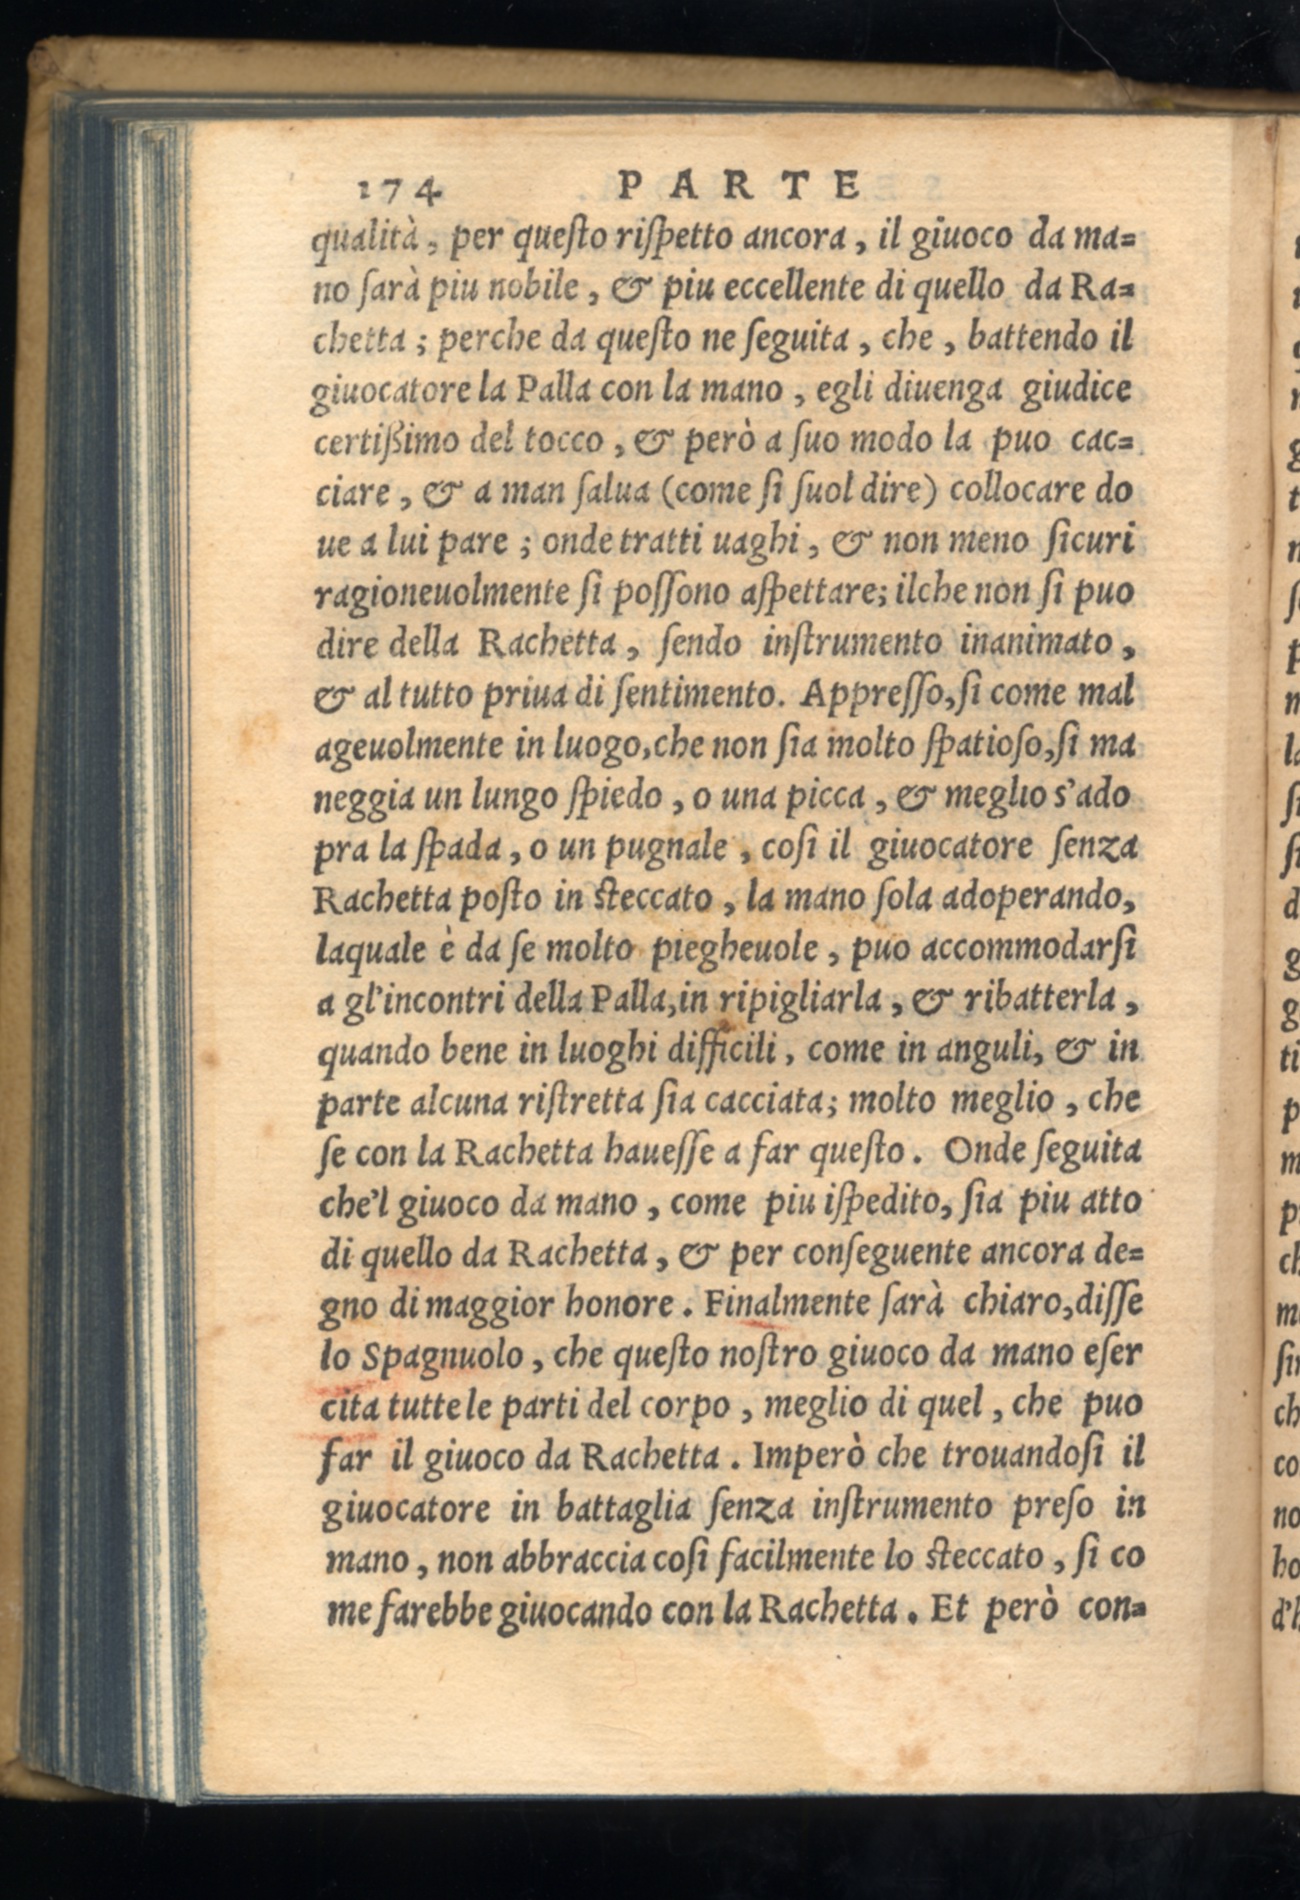 174 PARTE
qualità, per queſto riſpetto ancora, il giuoco da ma=
no ſarà piu nobile, & piu eccellente di quello da Ra=
chetta; perche da queſto ne ſeguita, che, battendo il
giuocatore la Palla con la mano, egli diuenga giudice
certißimo del tocco, & però a ſuo modo la puo cac=
ciare, & a man ſalua (come ſi ſuol dire) collocare do
ue a lui pare; onde tratti uaghi, & non meno ſicuri
ragioneuolmente ſi poſſono aſpettare; ilche non ſi puo
dire della Rachetta, ſendo inſtrumento inanimato,
& al tutto priua di ſentimento. Appreſſo, ſi come mal
ageuolmente in luogo, che non ſia molto ſpatioſo, ſi ma
neggia un lungo ſpiedo, o una picca, & meglio s'ado
pra la ſpada, o un pugnale, coſi il giuocatore ſenza
Rachetta poſto in ſteccato, la mano ſola adoperando,
laquale è da ſe molto piegheuole, puo accommodarſi
a gl'incontri della Palla, in ripigliarla, & ribatterla,
quando bene in luoghi difficili, come in anguli, & in
parte alcuna riſtretta ſia cacciata; molto meglio, che
ſe con la Rachetta haueſſe a far queſto. Onde ſeguita
che'l giuoco da mano, come piu iſpedito, ſia piu atto
di quello da Rachetta, & per conſeguente ancora de=
gno di maggior honore. Finalmente ſarà chiaro, diſſe
lo Spagnuolo, che queſto noſtro giuoco da mano eſer
cita tutte le parti del corpo, meglio di quel, che puo
far il giuoco da Rachetta. Imperò che trouandoſi il
giuocatore in battaglia ſenza inſtrumento preſo in
mano, non abbraccia coſi facilmente lo ſteccato, ſi co
me farebbe giuocando con la Rachetta. Et però con=